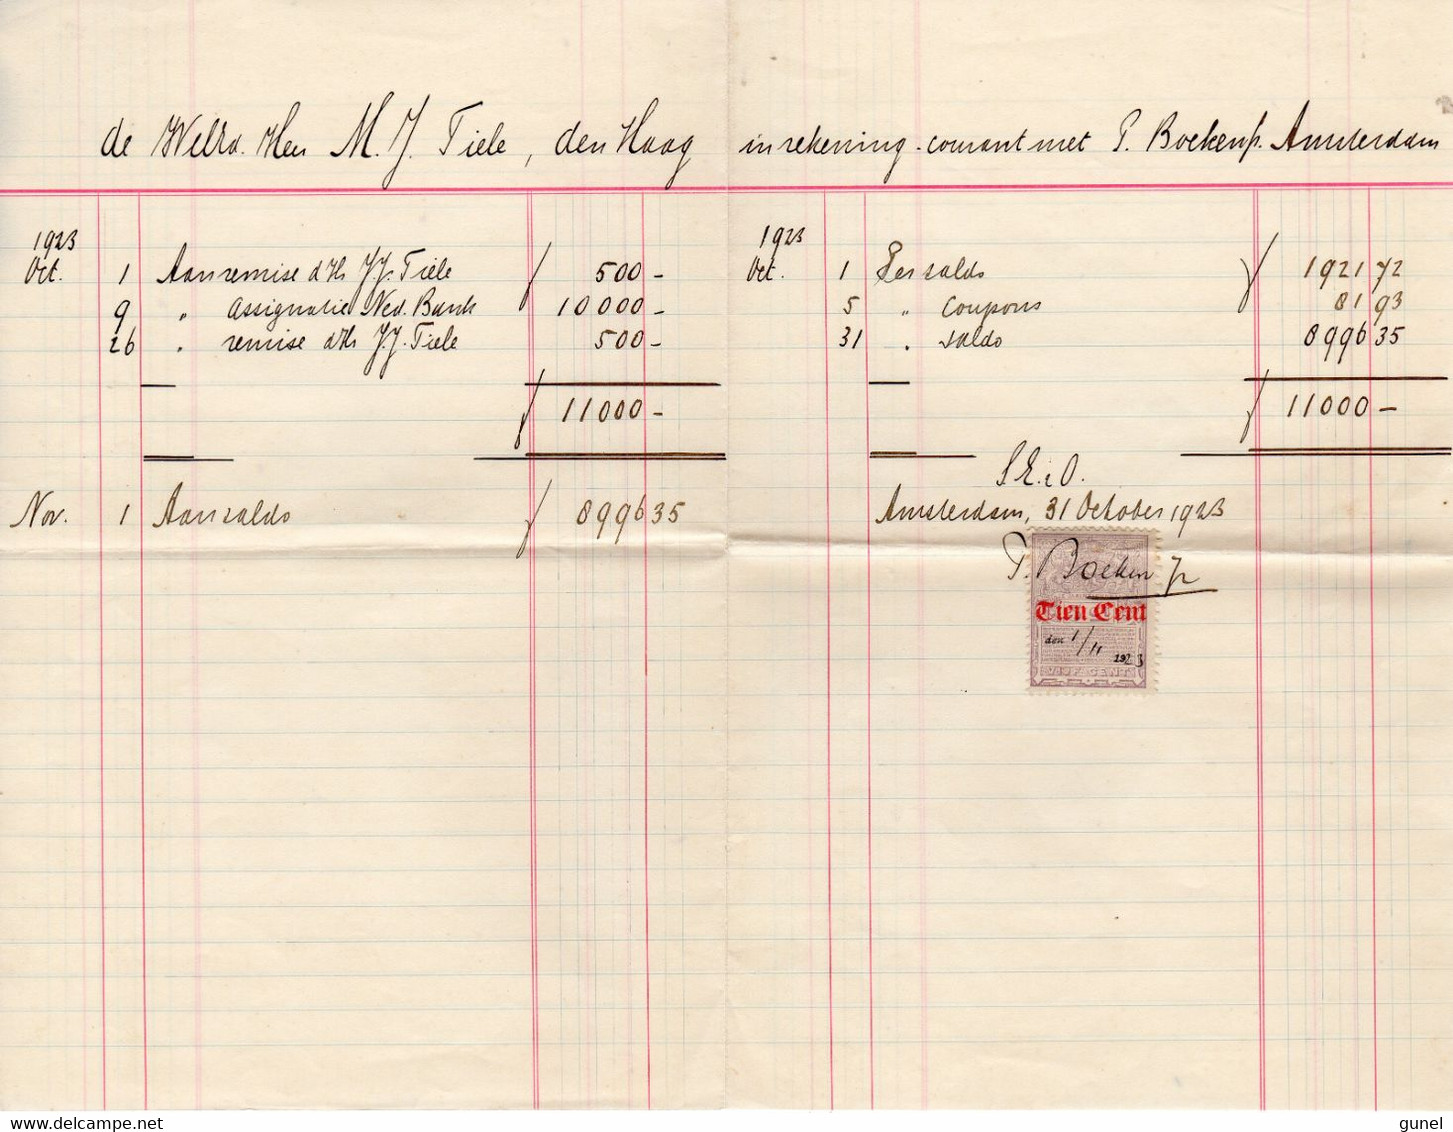 de WelEd. Heer M. J. Tiele, den Haag in rekening-courant met P. Boeken Jr. Amsterdam
1923
Oct. 1 Aan remise d/Hr J.J. Tiele f 500 -
9 " assignatie Ned. Bank 10000 -
26 " remise d/Hr J.J. Tiele 500 -
f 11000 -
Nov. 1 Aan saldo f 8996 35
1923
Oct. 1 Per saldo f 1921 72
5 " coupons 81 93
31 " saldo 8996 35
f 11000 -
S.E. & O.
Amsterdam, 31 October 1923
P. Boeken Jr
Tien Cent
den 1/11 1923
VIJF CENT
delcampe.net
gunel